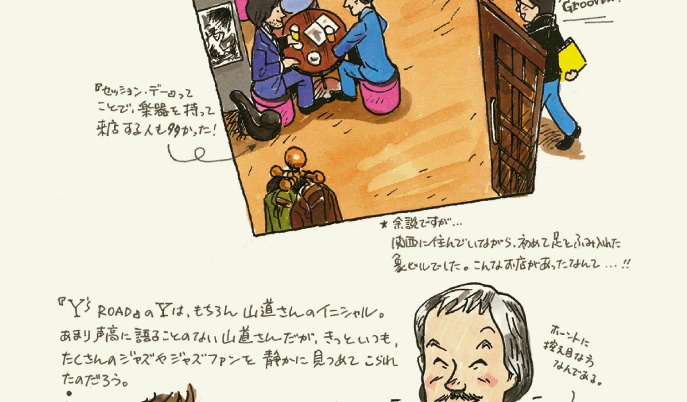 Groovin!
『セッション・デー』って
ことで、楽器を持って
来店する人も多かった！
★ 余談ですが…
関西に住んでいながら、初めて足をふみ入れた
象ビルでした。こんなお店があったなんて…!!
『Y's ROAD』のYは、もちろん 山道さんのイニシャル。
あまり声高に語ることのない山道さんだが、きっといつも、
たくさんのジャズやジャズファンを 静かに見つめて こられ
たのだろう。
ホントに
控え目な方
なんである。